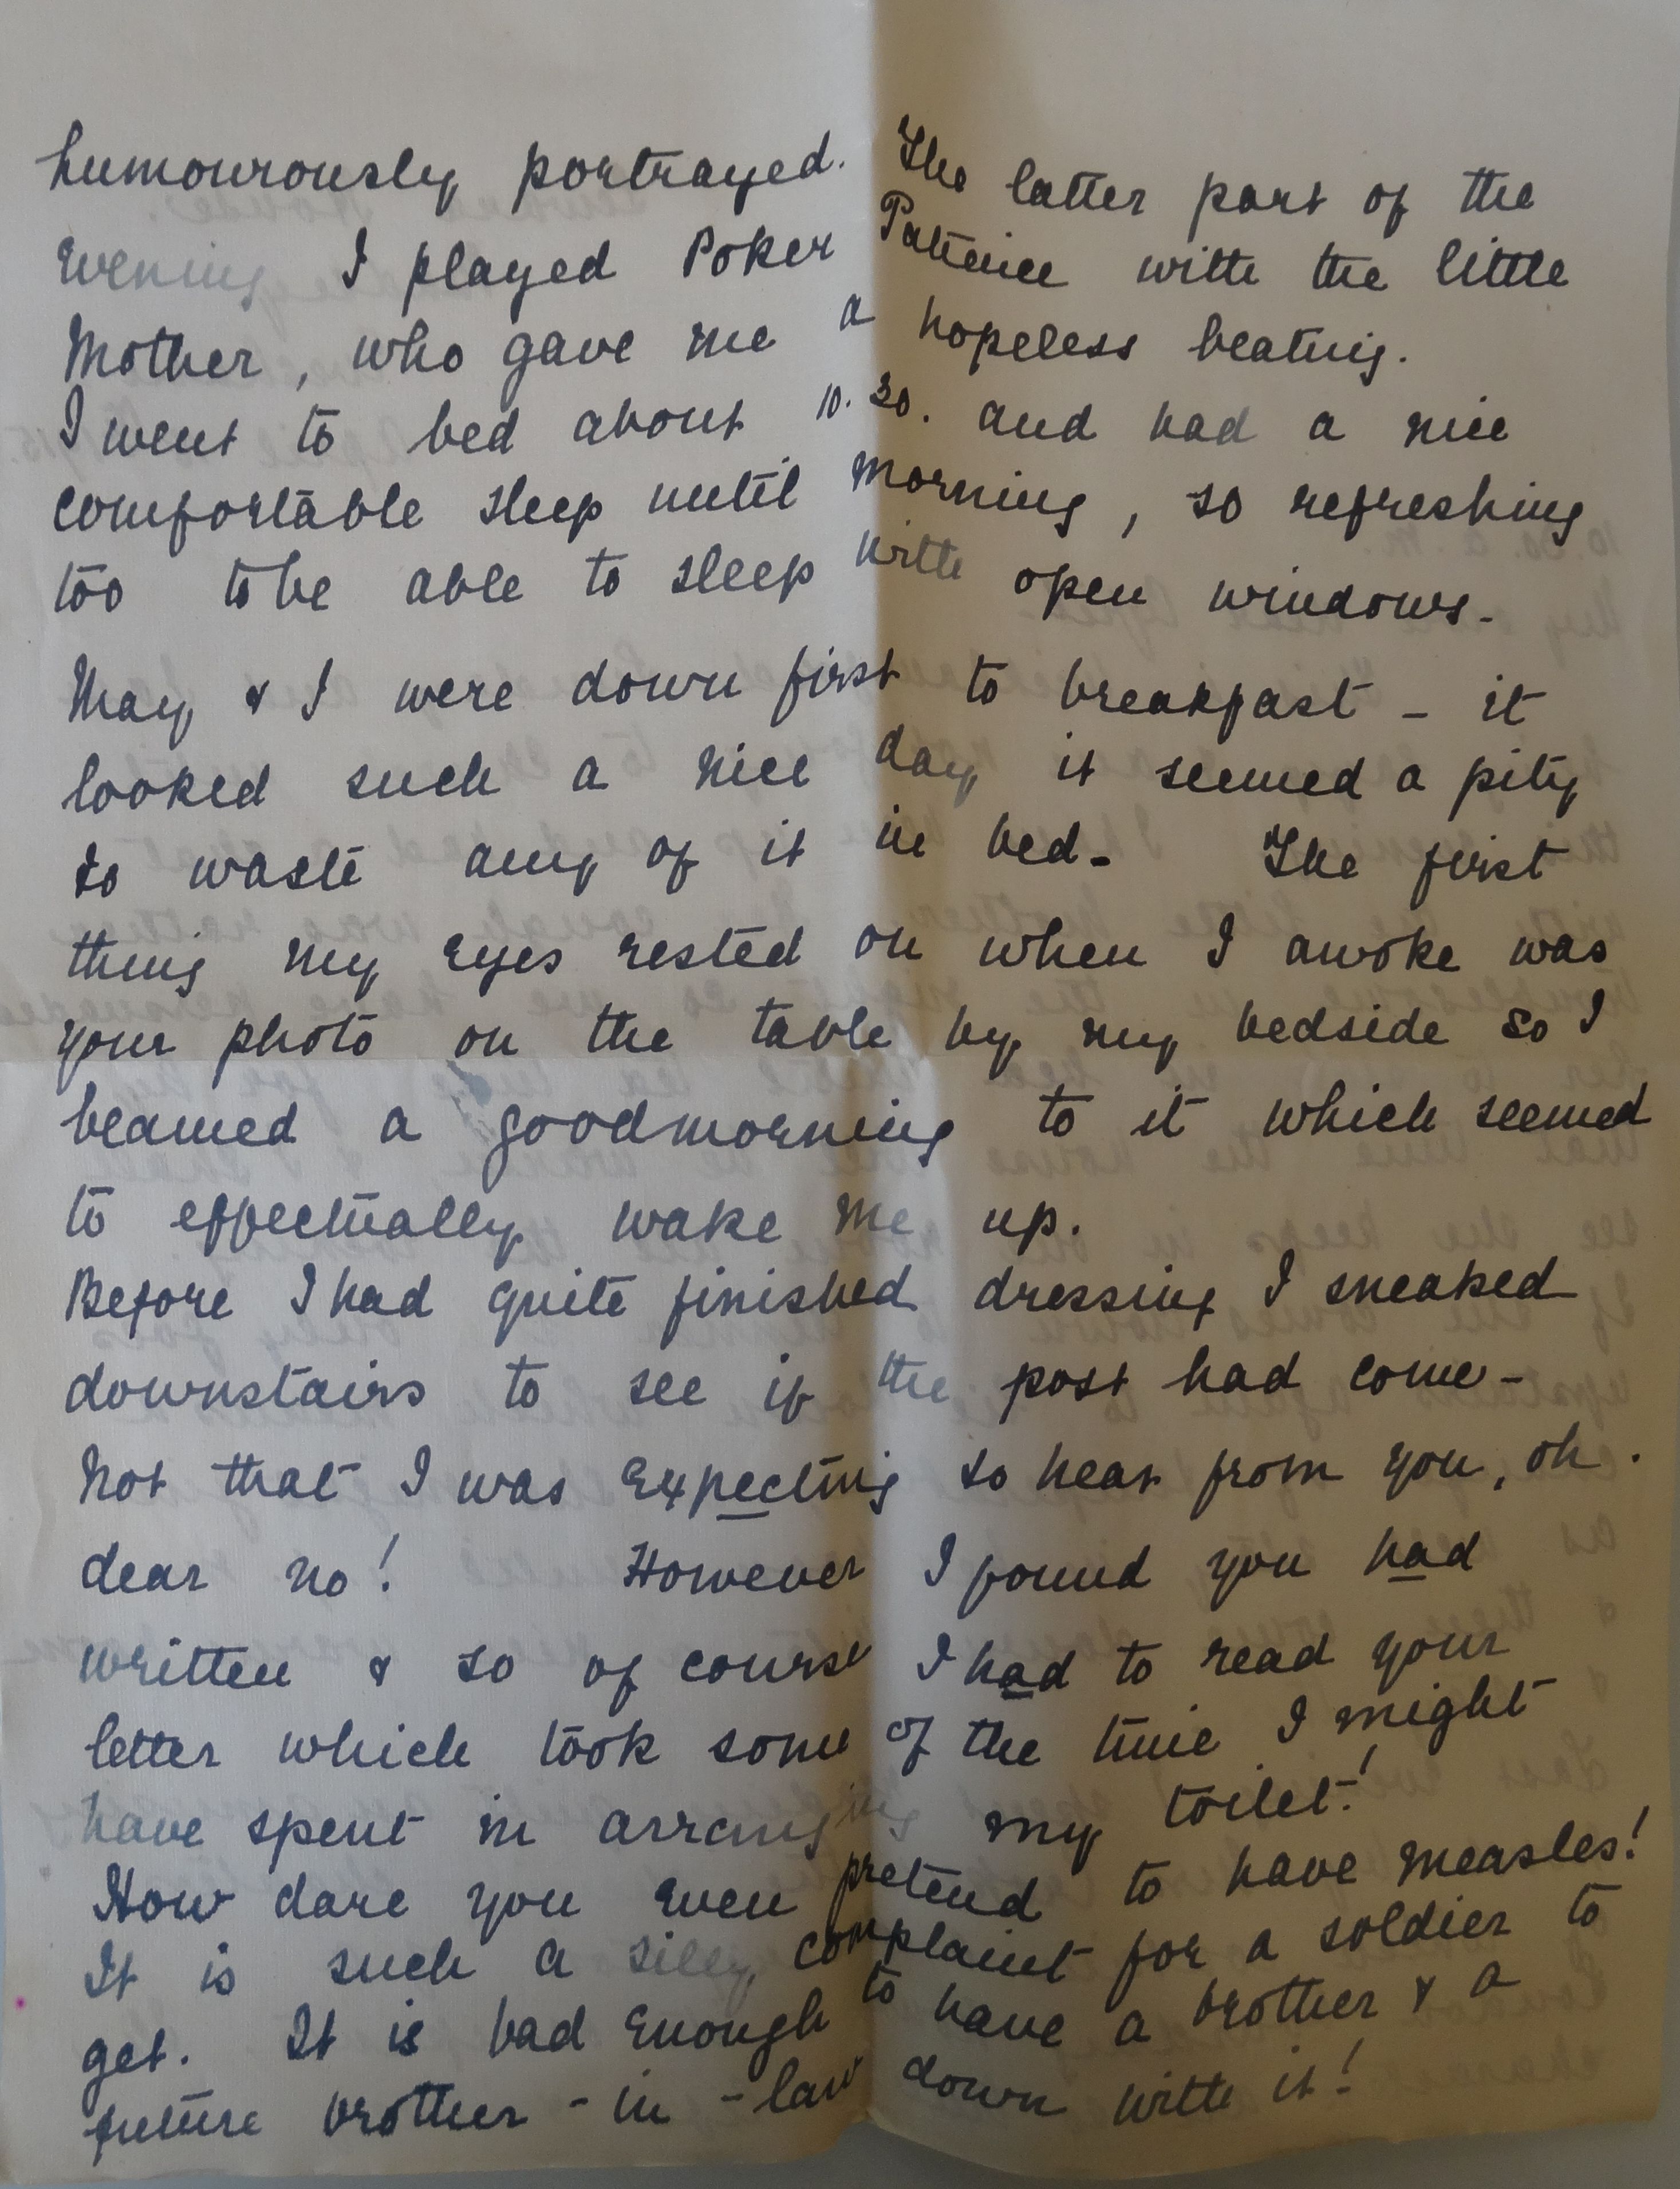 humourously portrayed. The latter part of the
evening I played Poker Patience with the little
Mother, who gave me a hopeless beating.
I went to bed about 10.30. and had a nice
comfortable sleep until morning, so refreshing
too to be able to sleep with open windows.
May & I were down first to breakfast - it
looked such a nice day it seemed a pity
to waste any of it in bed. The first
thing my eyes rested on when I awoke was
your photo on the table by my bedside so I
beamed a goodmorning to it which seemed
to effectually wake me up.
Before I had quite finished dressing I sneaked
downstairs to see if the post had come -
Not that I was expecting to hear from you, oh
dear no! However I found you had
written & so of course I had to read your
letter which took some of the time I might
have spent in arranging my toilet!
How dare you even pretend to have measles!
It is such a silly complaint for a soldier to
get. It is bad enough to have a brother & a
future brother-in-law down with it!